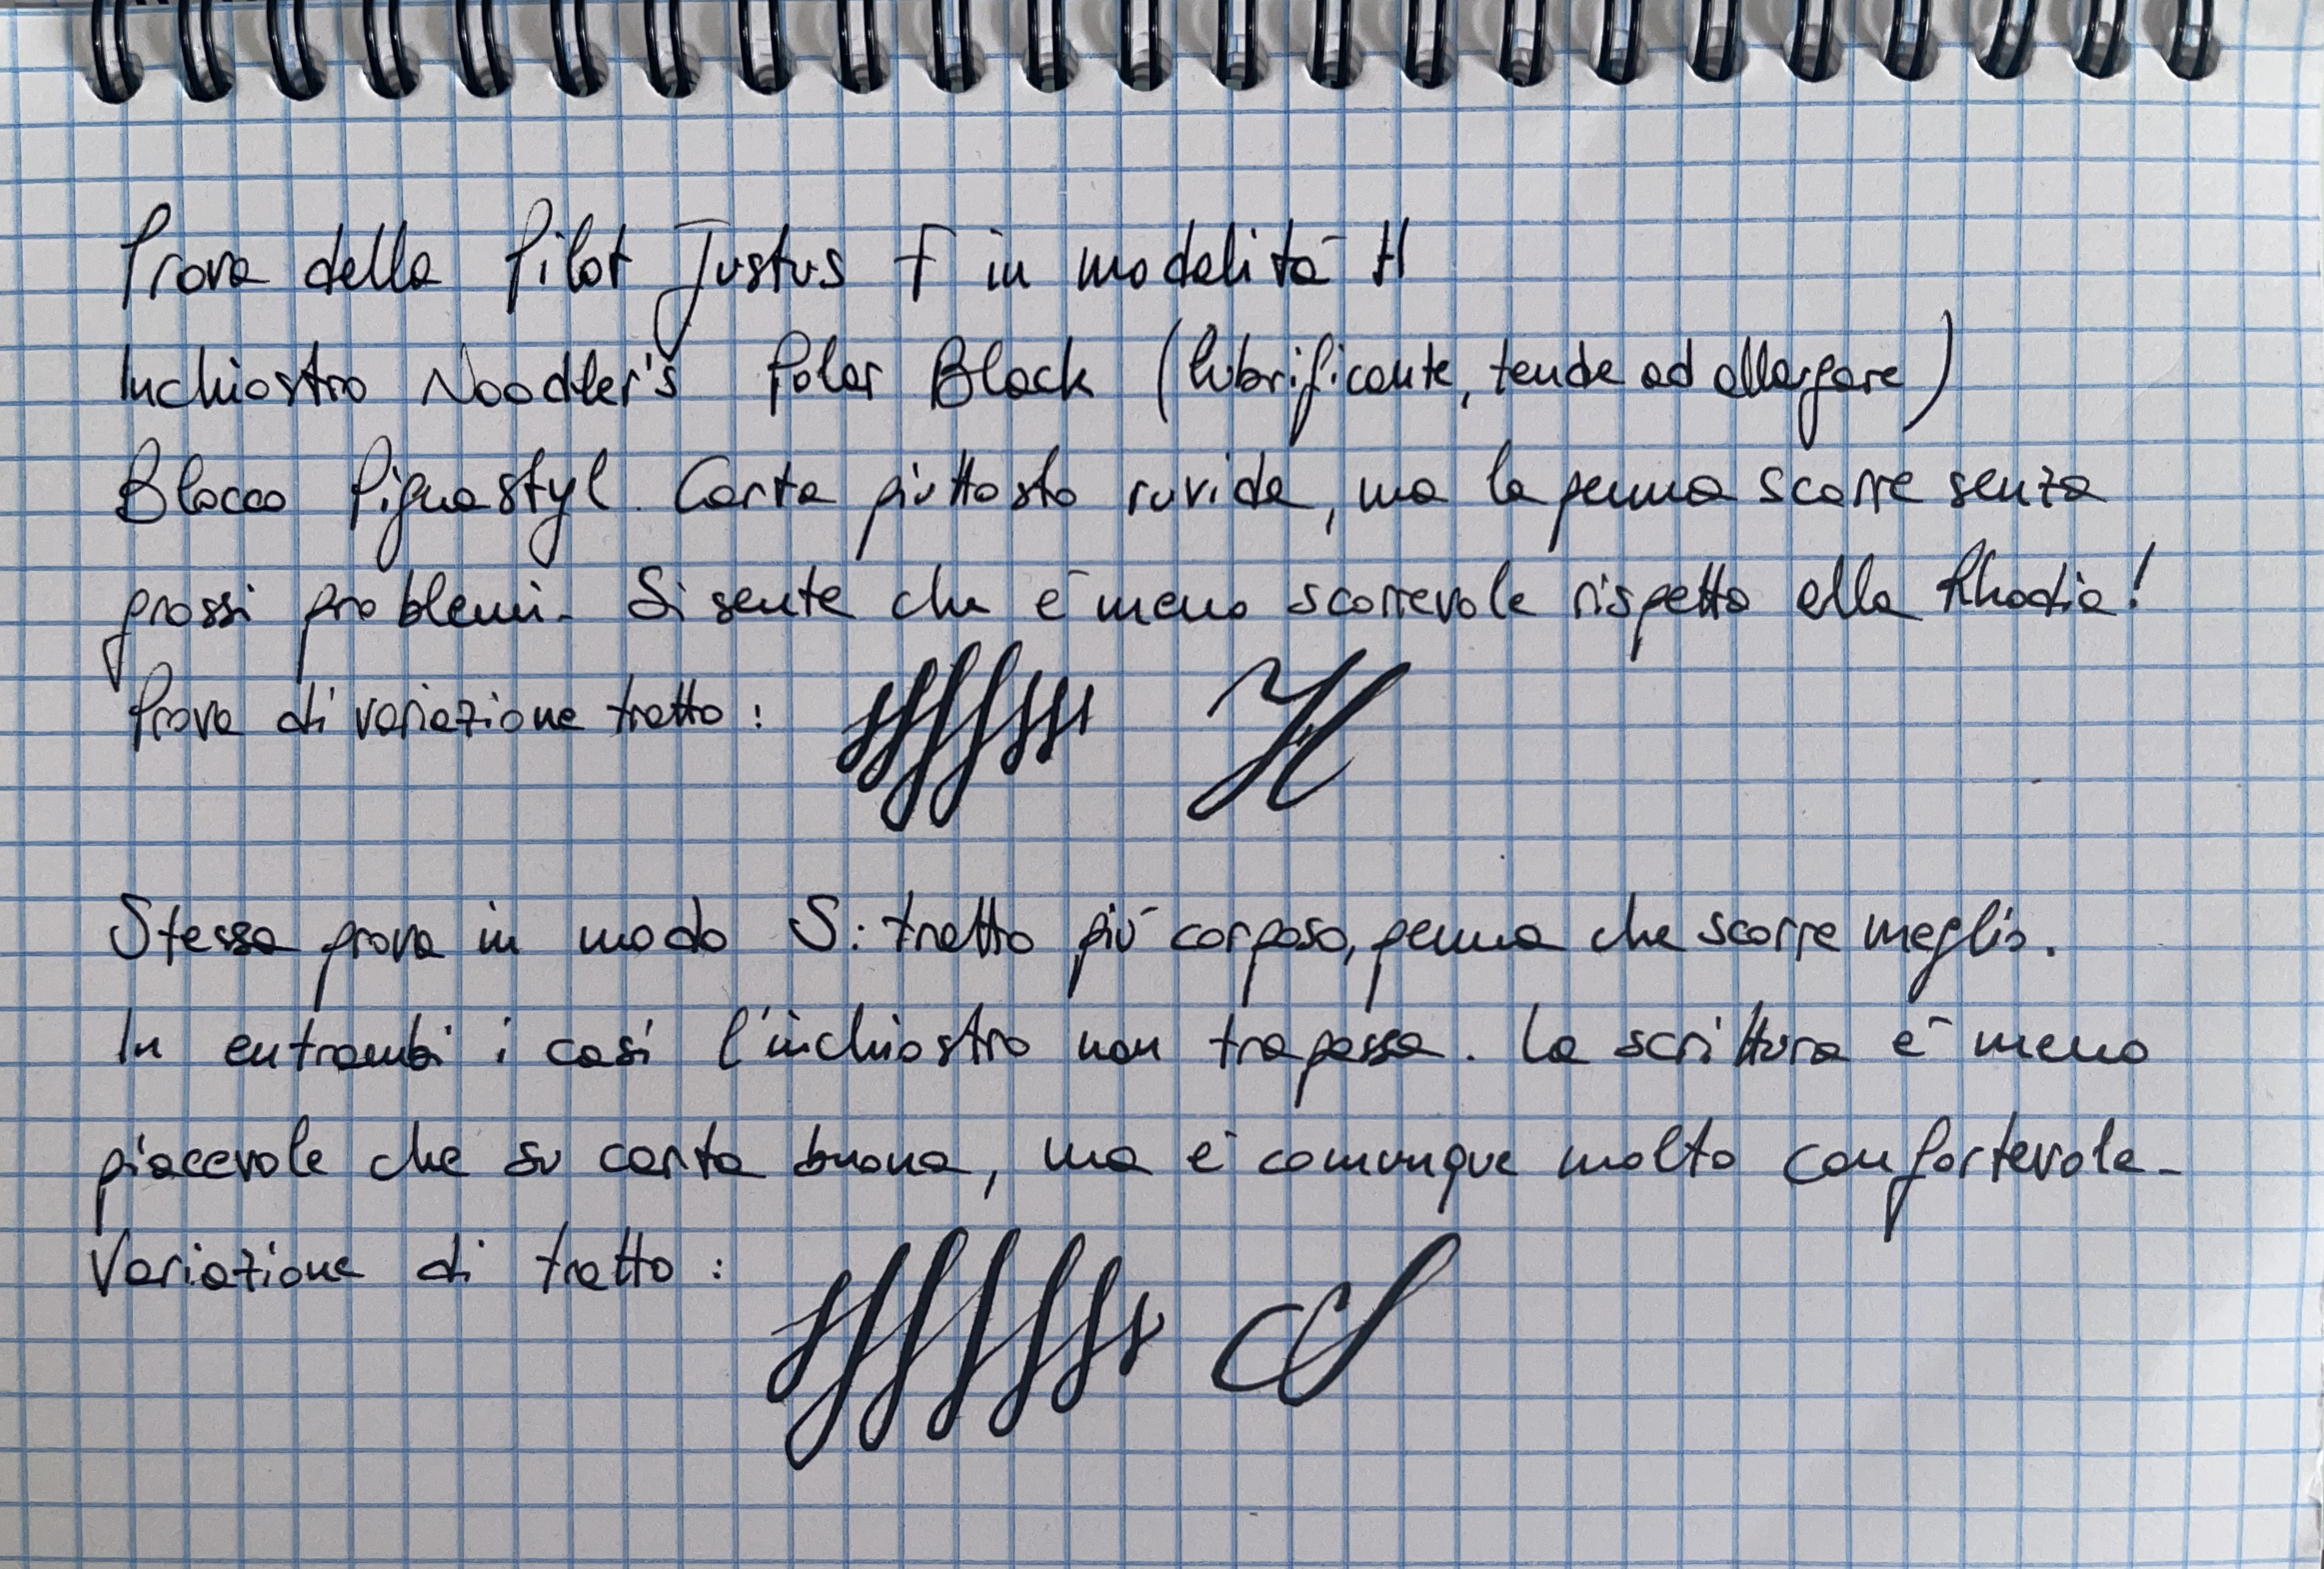 Prova della Pilot Justus F in modalità H
Inchiostro Noodler's Polar Black (lubrificante, tende ad allargare)
Blocco Pignastyl. Carta piuttosto ruvida, ma la penna scorre senza
grossi problemi. Si sente che è meno scorrevole rispetto alla Rhodia!
Prova di variazione tratto: H
Stessa prova in modo S: tratto più corposo, penna che scorre meglio.
In entrambi i casi l'inchiostro non trapassa. La scrittura è meno
piacevole che su carta buona, ma è comunque molto confortevole.
Variazione di tratto: S